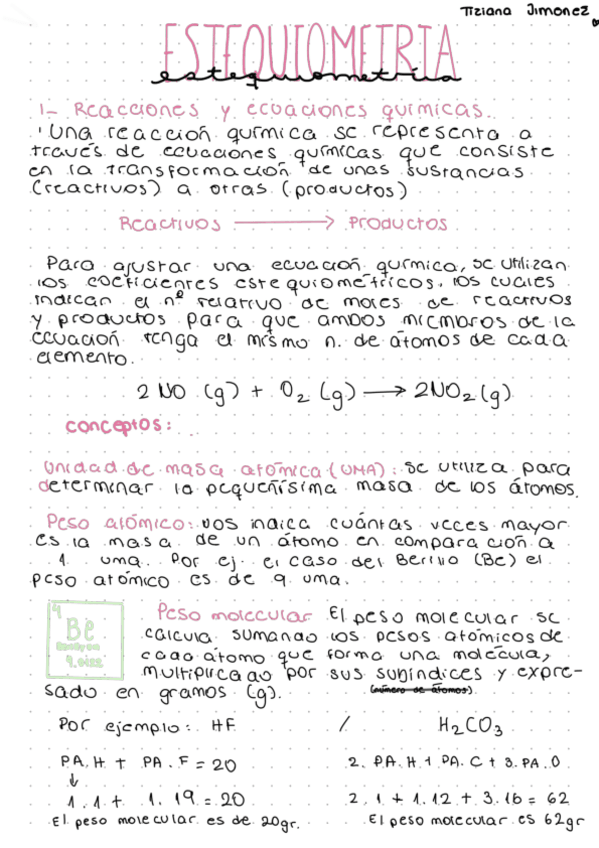 Tiziana Jimonez
ESTEQUIOMETRIA
estequiometria
1- Reacciones y ecuaciones químicas.
Una reacción química se representa a
través de ecuaciones químicas que consiste
en la transformación de unas sustancias
(reactivos) a otras (productos)
Reactivos → Productos
Para ajustar una ecuación química, se utilizan
los coeficientes estequiométricos, los cuales
indican el nº relativo de moles de reactivos
y productos para que ambos miembros de la
ecuación tenga el mismo n. de átomos de cada
elemento.
2 NO (g) + O₂ (g) → 2NO₂ (g)
conceptos:
Unidad de masa atómica (UMA): se utiliza para
determinar la pequeñísima masa de los átomos.
Peso atómico: nos indica cuántas veces mayor
es la masa de un átomo en comparación a
1 uma. Por ej. el caso del Berilio (Be) el
peso atómico es de 9 uma.
4
Be
9.0122
Peso molecular El peso molecular se
calcula sumando los pesos atómicos de
cada átomo que forma una molécula,
multiplicado por sus subíndices y expre-
sado en gramos (g). (número de átomos)
Por ejemplo: HF / H₂CO₃
PA. H + PA. F = 20 2. PA. H + PA. C + 3. PA. O
↓
1.1 + 1.19 = 20 2.1 + 1.12 + 3.16 = 62
El peso molecular es de 20gr. El peso molecular es 62gr